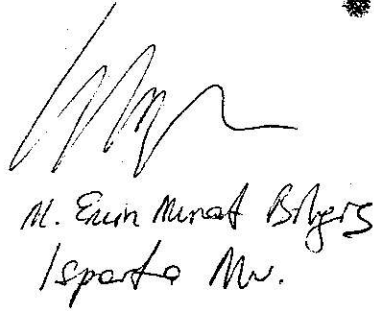 M. Emin Murat Bilgiç
Isparta Mv.